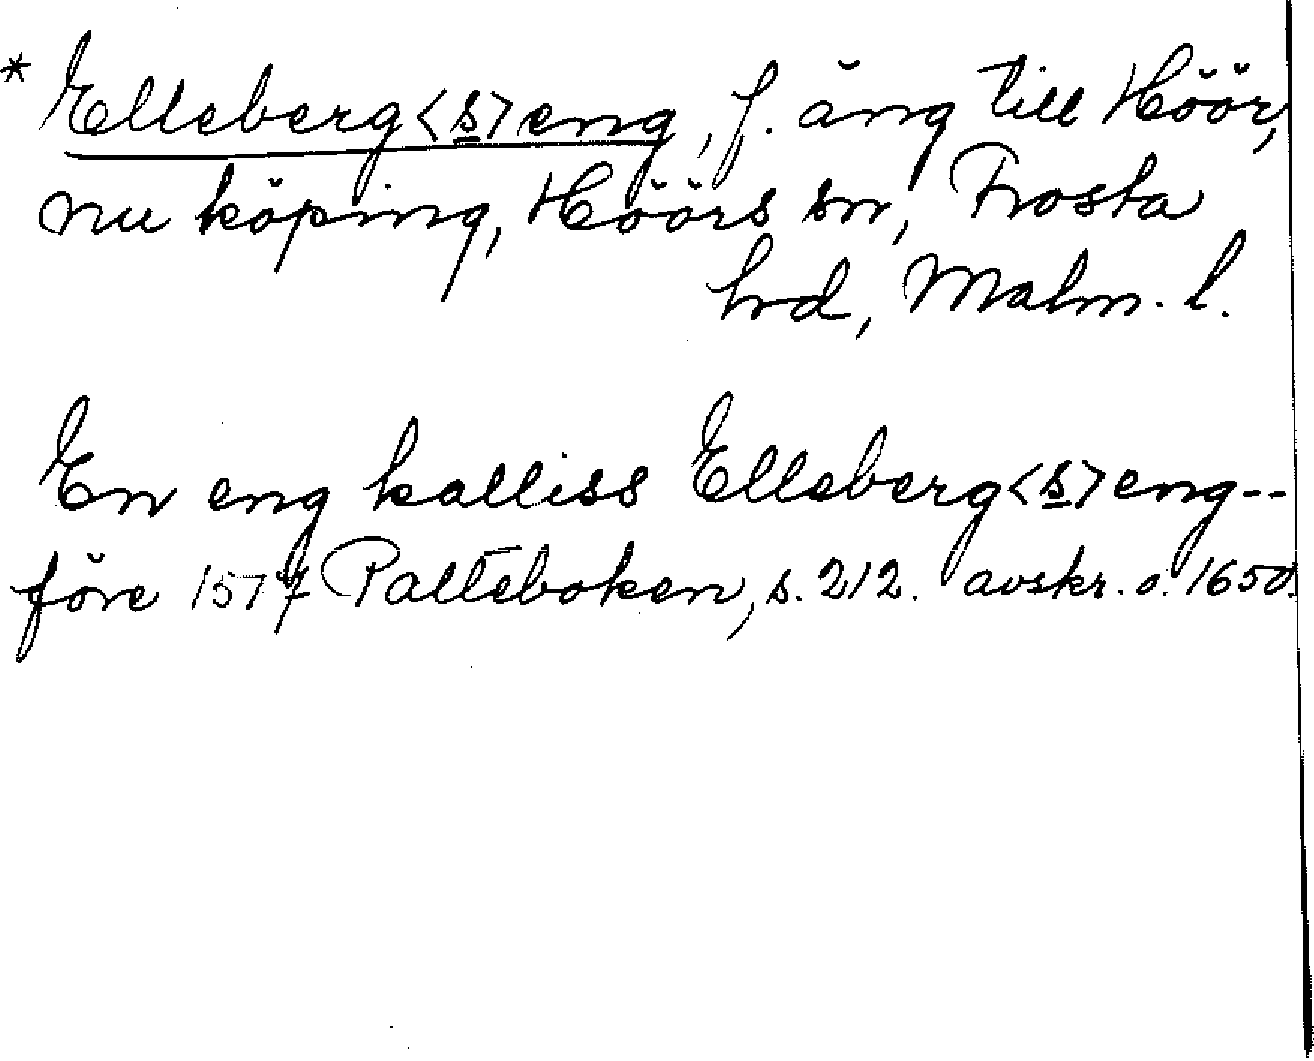 * Elleberg<s>eng, f. äng till Höör,
nu köping, Höörs sn, Frosta
hrd, Malm. l.
En eng kalliss Elleberg<s>eng--
före 1577 Palteboken, s. 212. avskr. o. 1650.